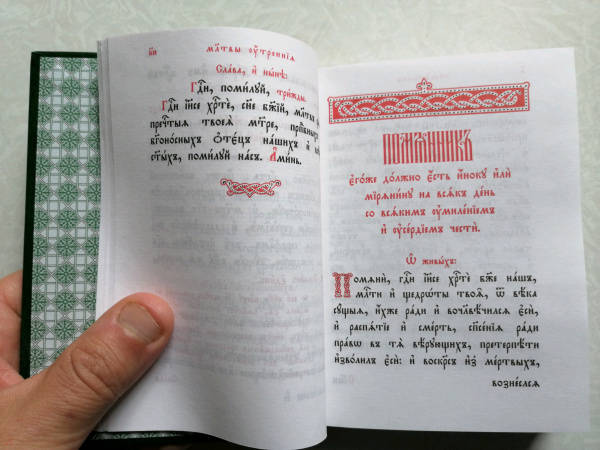 н҃и
мл҃твы ᲂу҆́трєннїѧ
Сла́ва, и҆ ны́нѣ:
Гдⷭ҇и, поми́лꙋй, три́жды.
Гдⷭ҇и і҆и҃се хрⷭ҇тѐ, сн҃е бж҃їй,
прⷱ҇тыѧ твоеѧ̀ мт҃ре,
бг҃оно́сныхъ ѻ҆тє́цъ на́шихъ и҆
ст҃ы́хъ, поми́лꙋй на́съ. А҆ми́нь.
ПОМѦННИКЪ
є҆го́же до́лжно є҆́сть и҆́нокꙋ и҆лѝ
мїрѧни́нꙋ на всѧ́къ де́нь
со всѧ́кимъ ᲂу҆миле́нїемъ
и҆ ᲂу҆се́рдїемъ честѝ.
Ѡ҆ живы́хъ:
Помѧнѝ, гдⷭ҇и і҆и҃се хрⷭ҇тѐ бж҃е на́шъ,
мл҃ти и҆ щедрѡ́ты твоѧ̑, ѿ вѣ́ка
сꙋ́щыѧ, и҆́хже ра́ди и҆ вочл҃вѣ́чилсѧ є҆сѝ,
и҆ распѧ́тїе и҆ сме́рть, спⷭ҇е́нїѧ ра́ди
пра́вѡ въ тѧ̀ вѣ́рꙋющихъ, претерпѣ́ти
и҆зво́лилъ є҆сѝ: и҆ воскрⷭ҇ъ и҆з̾ ме́ртвыхъ,
вознеслсѧ